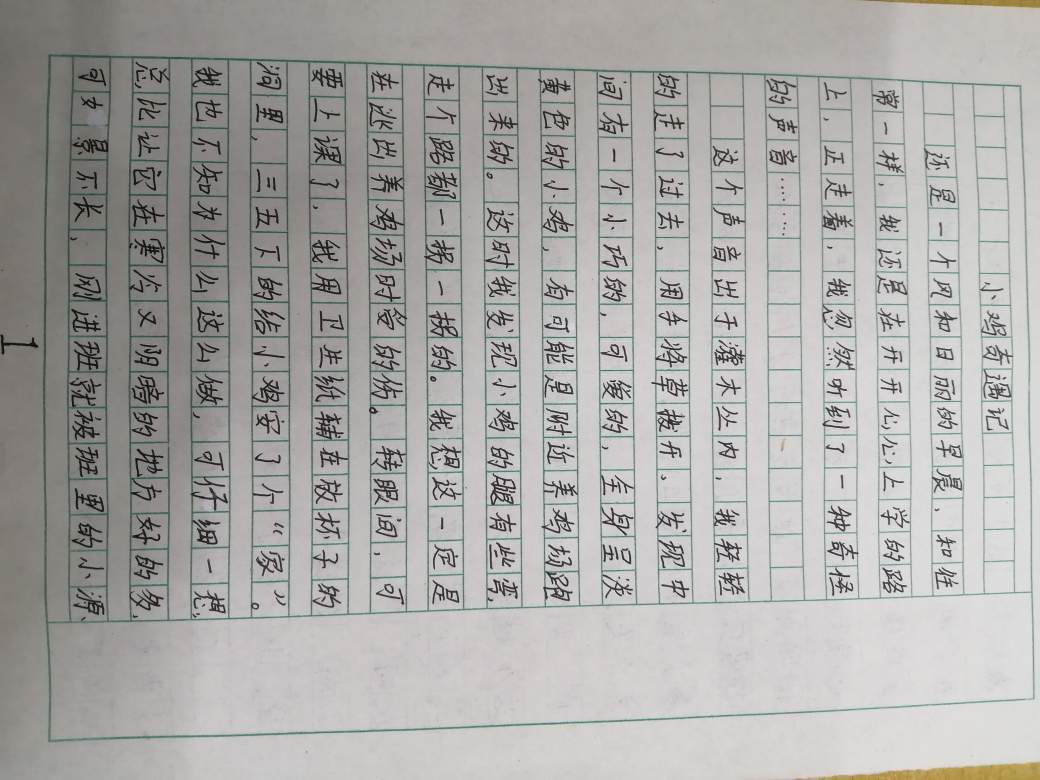 小鸡奇遇记
还是一个风和日丽的早晨，和往
常一样，我还是在开开心心上学的路
上，正走着，我忽然听到了一种奇怪
的声音……
这个声音出于灌木丛内，我轻轻
的走了过去，用手将草拨开。发现中
间有一个小巧的，可爱的，全身呈淡
黄色的小鸡，有可能是附近养鸡场跑
出来的。这时我发现小鸡的腿有些弯，
走个路都一拐一拐的。我想这一定是
在逃出养鸡场时受的伤。转眼间，可
要上课了，我用卫生纸辅在放杯子的
洞里，三五下的给小鸡安了个“家”。
我也不知为什么这么做，可仔细一想，
总比让它在寒冷又阴暗的地方好的多，
可好景不长，刚进班就被班里的小源、
1